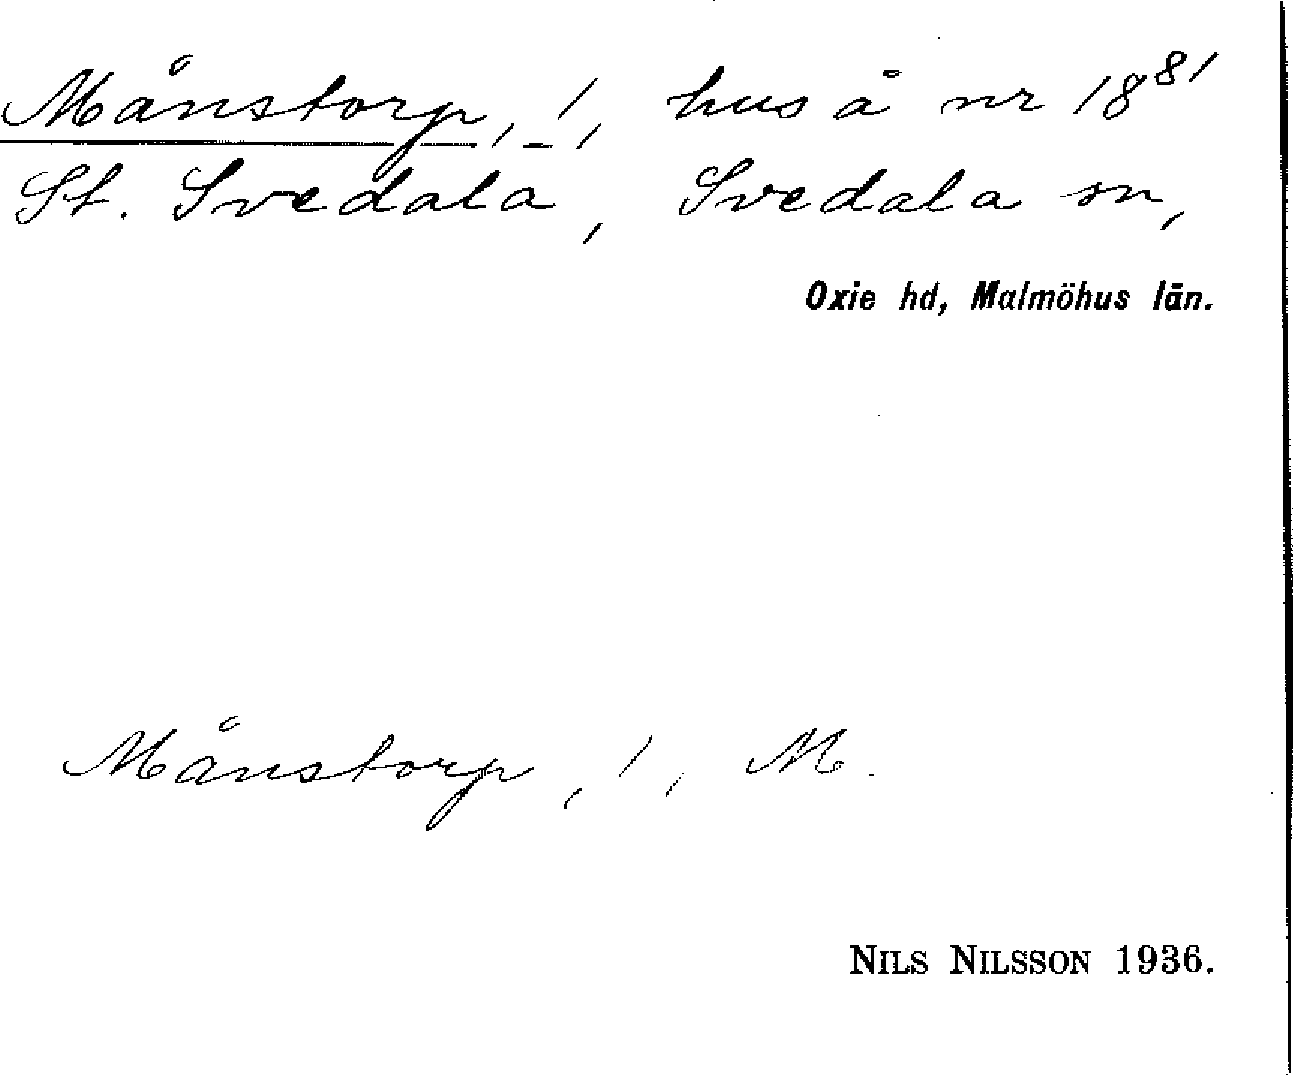 Månstorp, 1, hus å nr 18⁸¹
St. Svedala, Svedala sn,
Oxie hd, Malmöhus län.
Månstorp, 1, M.
NILS NILSSON 1936.